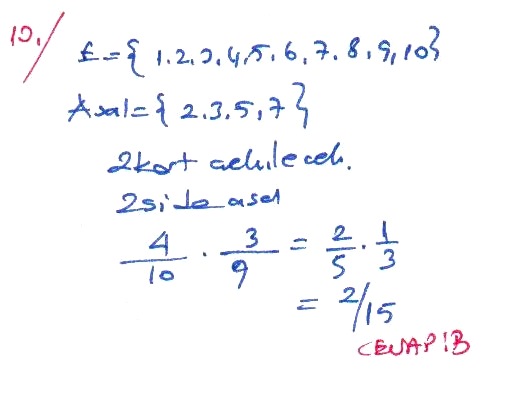 10.
E={1.2.3.4.5.6.7.8.9,10}
Asal={2.3.5,7}
2 kart çekilecek.
2 si de asal
4/10 . 3/9 = 2/5 . 1/3
= 2/15
CEVAP:B